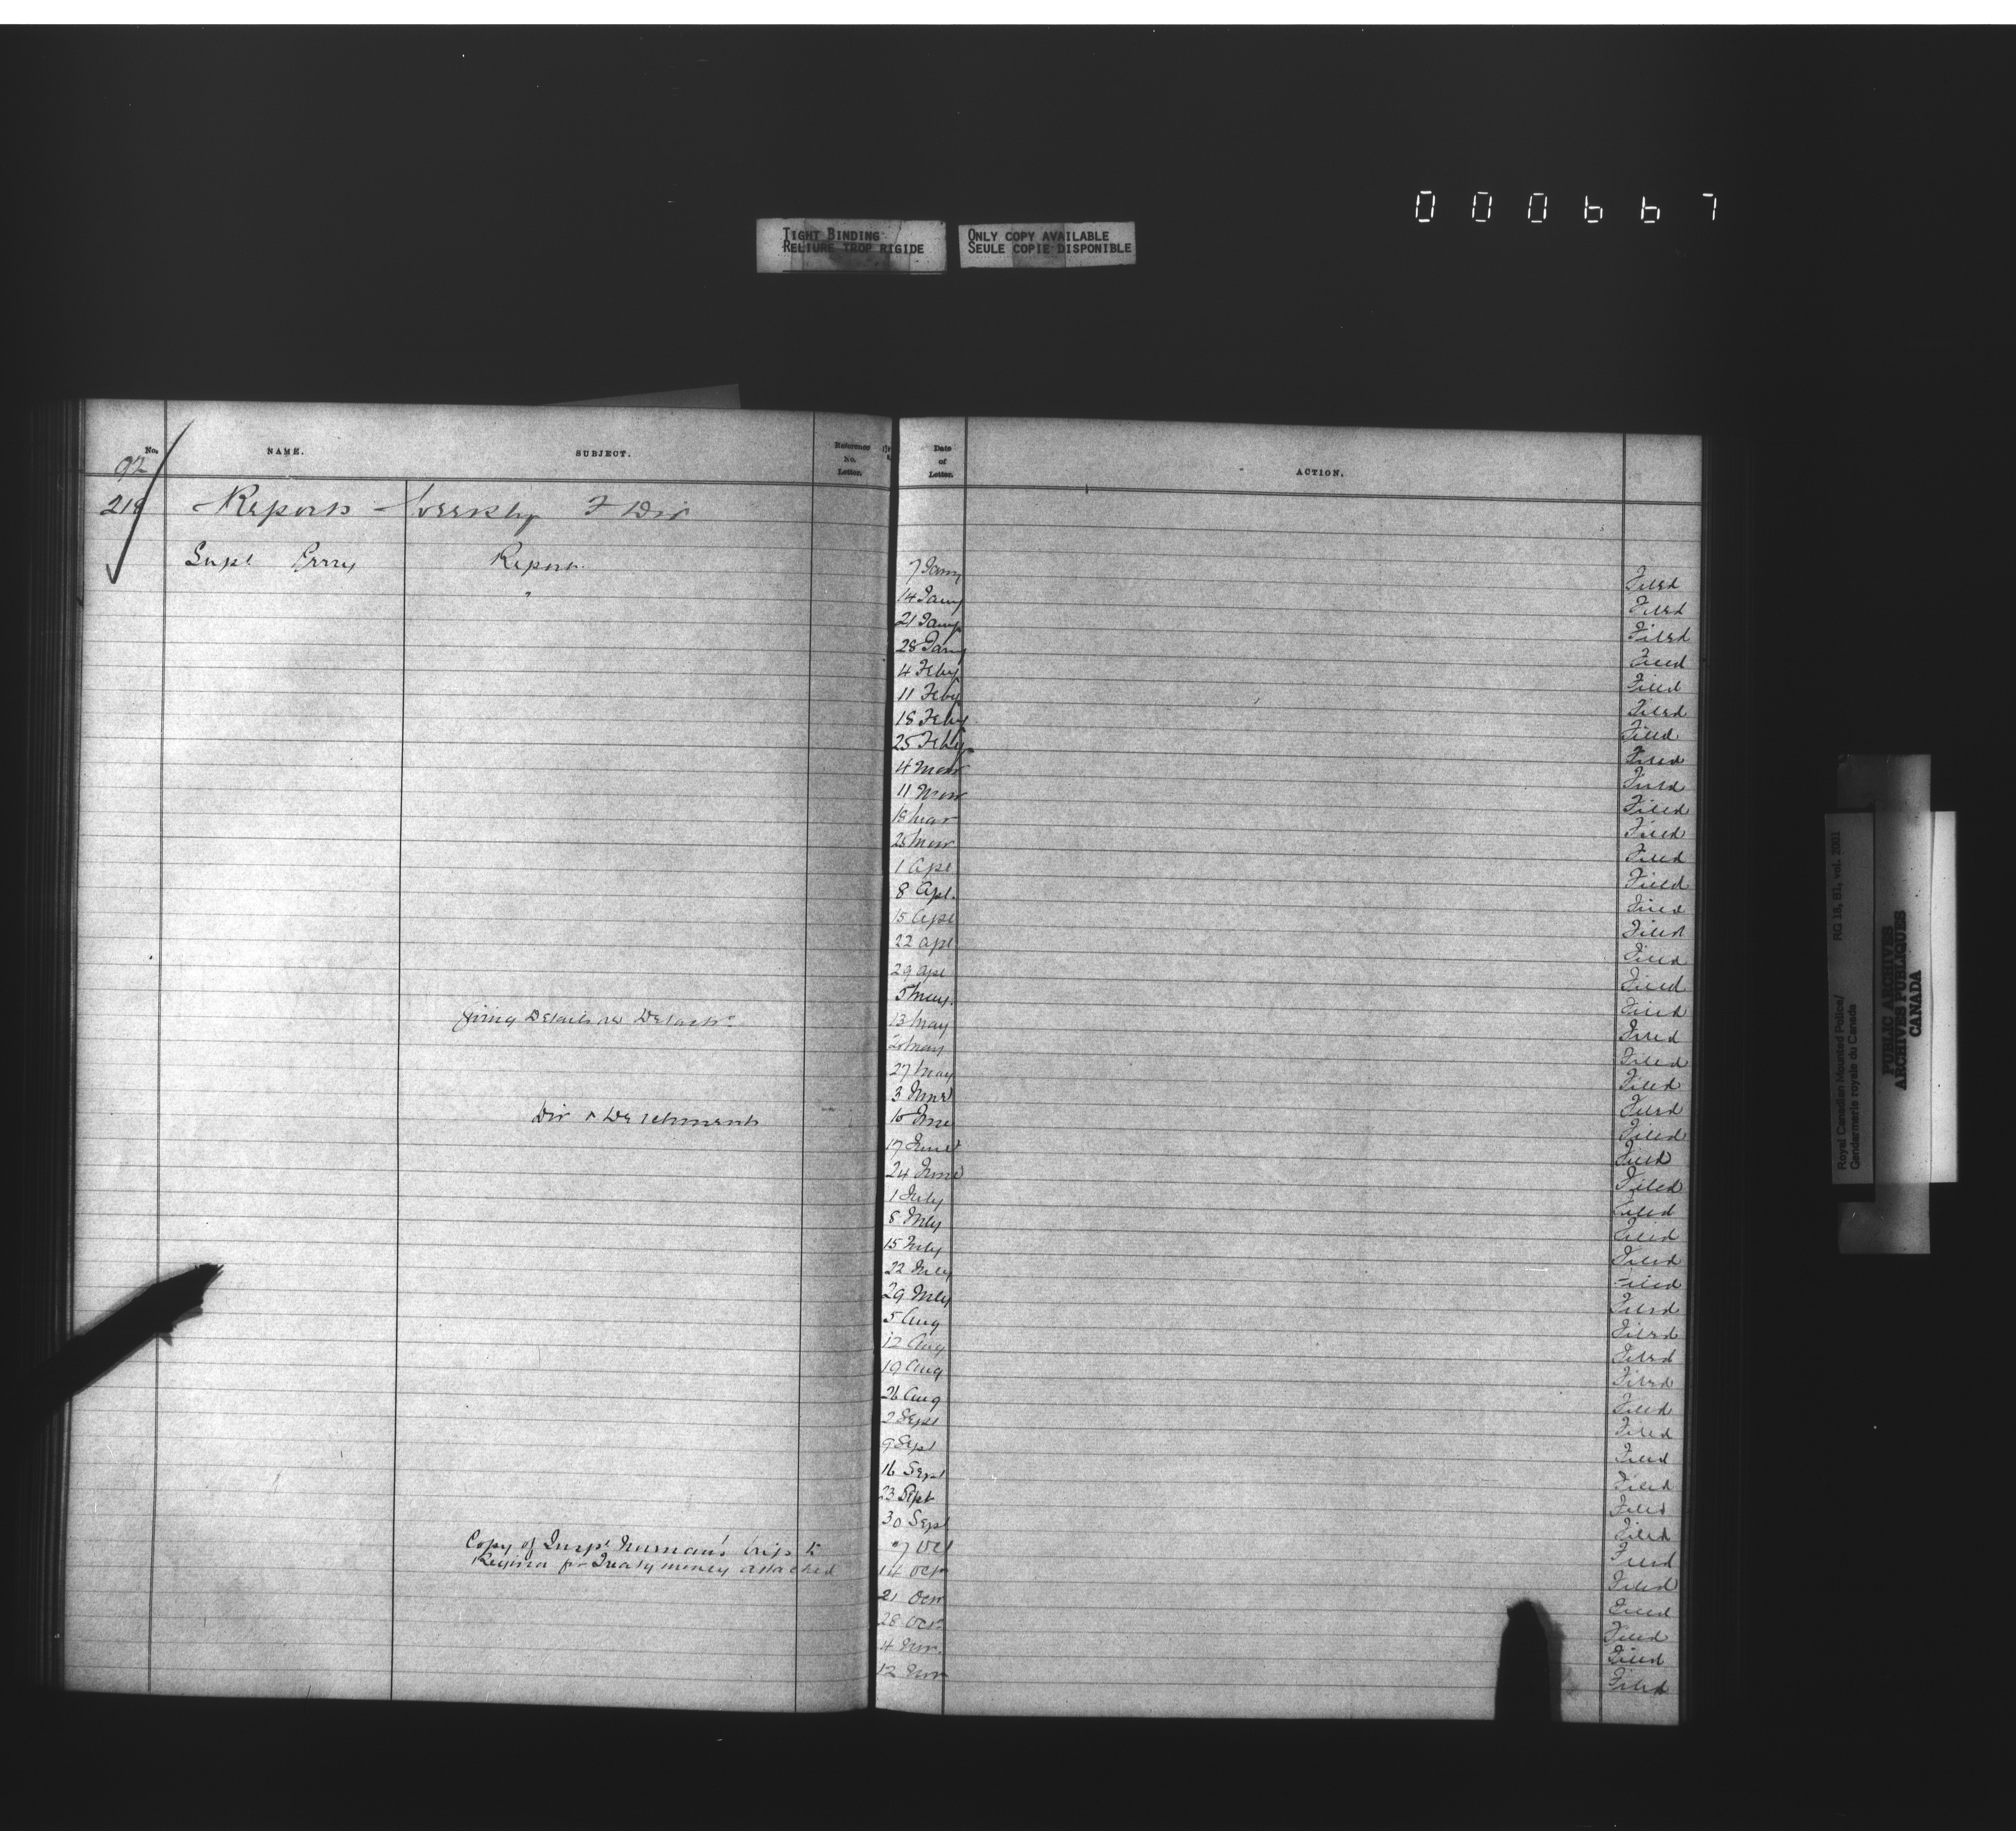 0 0 0 6 6 7
TIGHT BINDING
RELIURE TROP RIGIDE
ONLY COPY AVAILABLE
SEULE COPIE DISPONIBLE
No. NAME. SUBJECT. Reference No. Letter. Date of Letter. ACTION.
92
218 Reports - Weekly F Div
Supt Perry Report 7 Jany Filed
" 14 Jany Filed
21 Jany Filed
28 Jany Filed
4 Feby Filed
11 Feby Filed
18 Feby Filed
25 Feby Filed
4 Mar Filed
11 Mar Filed
18 Mar Filed
25 Mar Filed
1 Apl Filed
8 Apl. Filed
15 Apl Filed
22 Apl Filed
29 Apl Filed
5 May. Filed
giving Details 13 May Filed
20 May Filed
27 May Filed
3 June Filed
Div & Detachments 10 June Filed
17 June Filed
24 June Filed
1 July Filed
8 July Filed
15 July Filed
22 July Filed
29 July Filed
5 Aug Filed
12 Aug Filed
19 Aug Filed
26 Aug Filed
2 Sept Filed
9 Sept Filed
16 Sept Filed
23 Sept Filed
30 Sept Filed
Copy of Inspr trip to 7 Oct Filed
Regina for Treaty money attached 14 Oct Filed
21 Oct Filed
28 Oct Filed
4 Nov. Filed
12 Nov Filed
Royal Canadian Mounted Police/
Gendarmerie royale du Canada
RG 18, B1, vol. 2001
PUBLIC ARCHIVES
ARCHIVES PUBLIQUES
CANADA